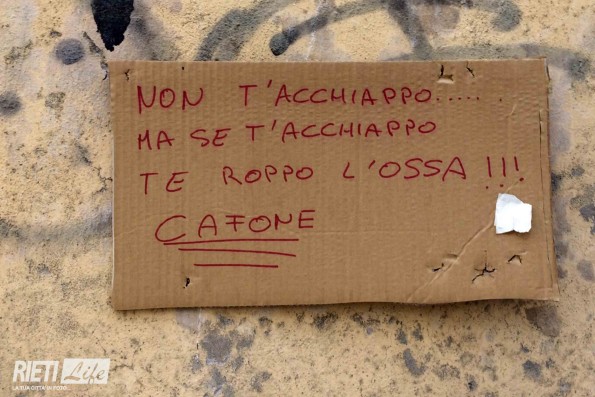 NON T'ACCHIAPPO......
MA SE T'ACCHIAPPO
TE ROPPO L'OSSA !!!
CAFONE
RIETI Life
LA TUA CITTÀ IN FOTO